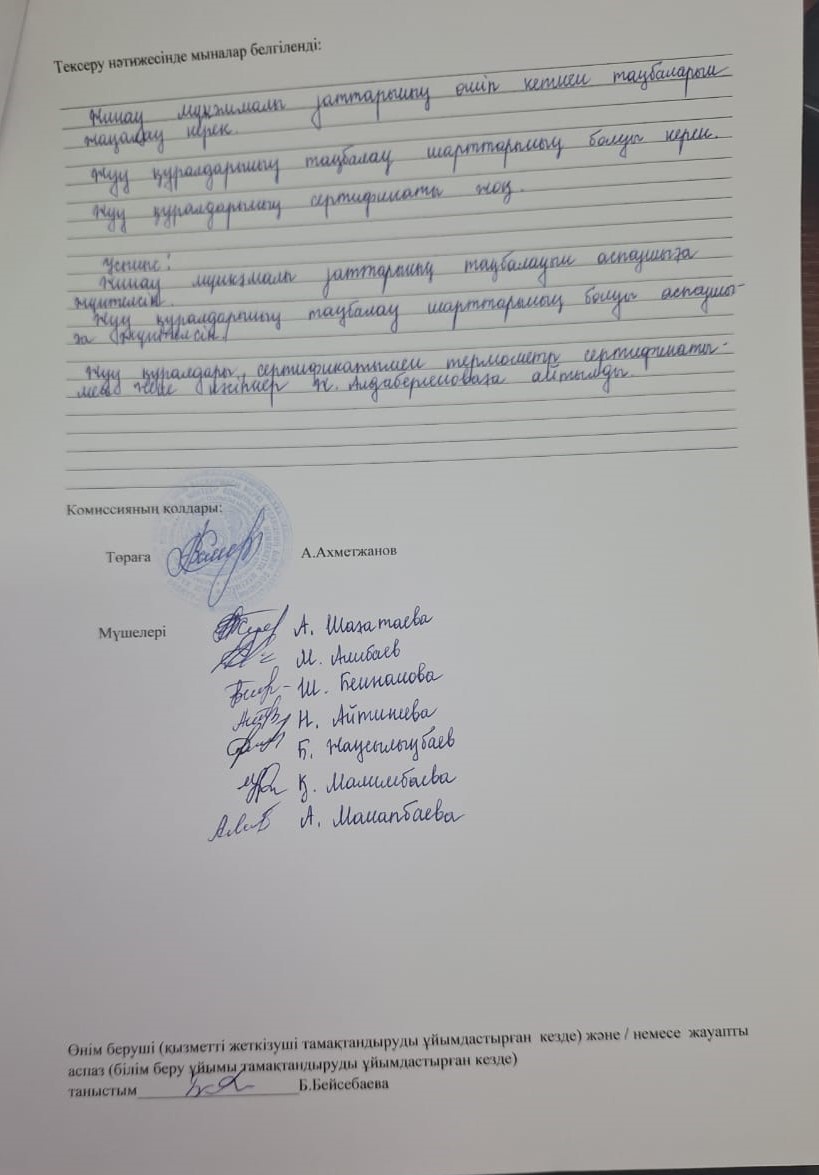 Тексеру нәтижесінде мыналар белгіленді:
Жинау мұқжмалы заттарының өшіп кеткен таңбаларын
жаңалау керек.
Жуу құралдарының таңбалау шарттарының болуы керек.
Жуу құралдарының сертификаты жоқ.
Ұсыныс:
Жинау мұкәмалы заттарының таңбалауын аспазшыға
жүктелсін.
Жуу құралдарының таңбалау шарттарының болуы аспазшы-
ға жүктелсін.
Жуу құралдары сертификатымен термометр сертификаты-
мен және инженер Алдабергеноваға айтылды.
Комиссияның қолдары:
Төраға А.Ахметжанов
Мүшелері А. Шағатаева
М. Алибаев
Ш. Бейнанова
Н. Айтикеева
Б. Жақсылықбаев
Қ. Малимбаева
А. Манапбаева
Өнім беруші (қызметті жеткізуші тамақтандыруды ұйымдастырған кезде) және / немесе жауапты
аспаз (білім беру ұйымы тамақтандыруды ұйымдастырған кезде)
таныстым Б.Бейсебаева